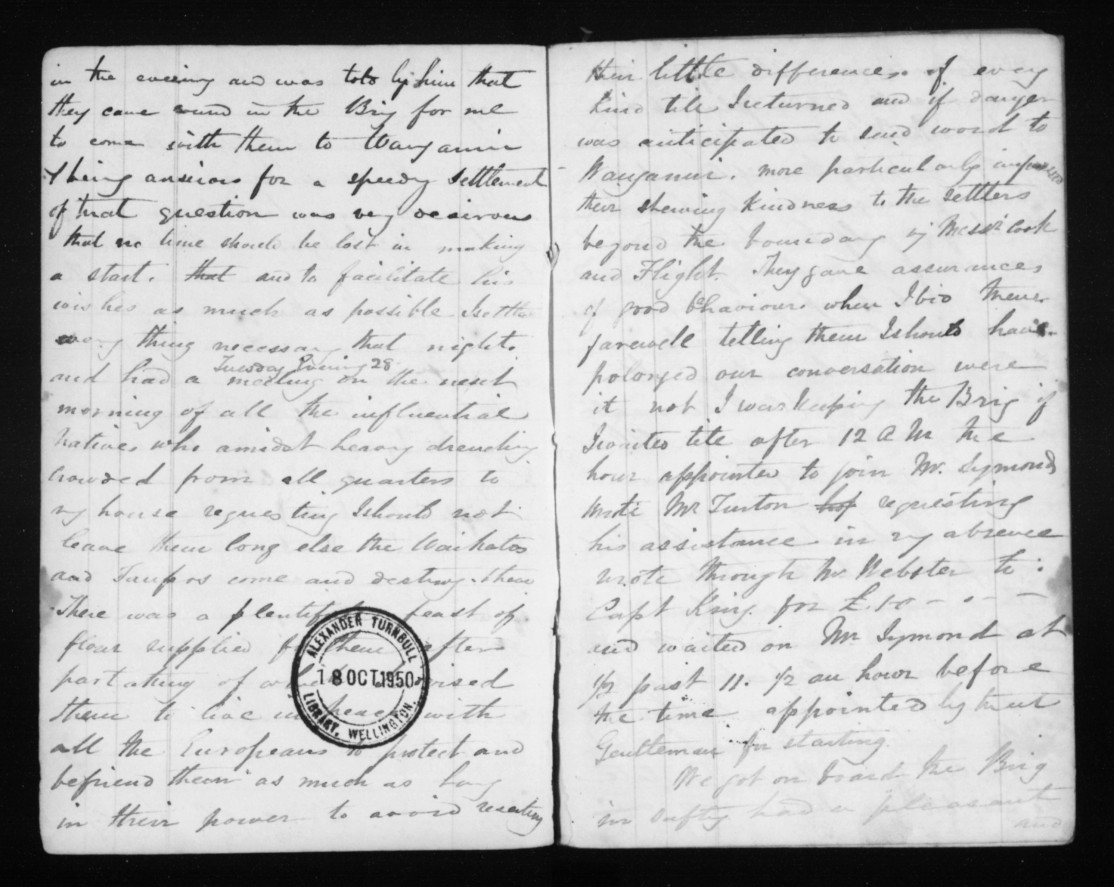 in the evening and was told by him that
they came round in the Brig for me
to come with them to Wanganui
I being anxious for a speedy settlement
of that question was very desirous
that no time should be lost in making
a start. that and to facilitate his
wishes as much as possible I settled
every thing necessary that night.
Tuesday Evening 28
and had a meeting on the next
morning of all the influential
Natives who amidst heavy drenching
crowded from all quarters to
my house requesting I should not
leave them long else the Waikatos
and Taupos come and destroy them
There was a plentiful feast of
flour supplied for them after
partaking of advised
them to live in peace with
all the Europeans to protect and
befriend them as much as lay
in their power to avoid resenting
ALEXANDER TURNBULL
18 OCT 1950
LIBRARY, WELLINGTON.
their little differences of every
kind till I returned and if danger
was anticipated to send word to
Wanganui. more particularly impressed
their shewing kindness to the settlers
beyond the boundary of Messrs Cook
and Flight. They gave assurances
of good behaviour when I bid them
farewell telling them I should have
polonged our conversation were
it not I was keeping the Brig if
I waited till after 12 A M the
hour appointed to join Mr. Symonds
wrote Mr Turton requesting
his assistance in my absence
wrote through Mr Webster to
Capt King for £10 - " -
and waited on Mr Symond at
1/2 past 11. 1/2 an hour before
the time appointed by that
Gentleman for starting
We got on board the Brig
in safety had a pleasant
and